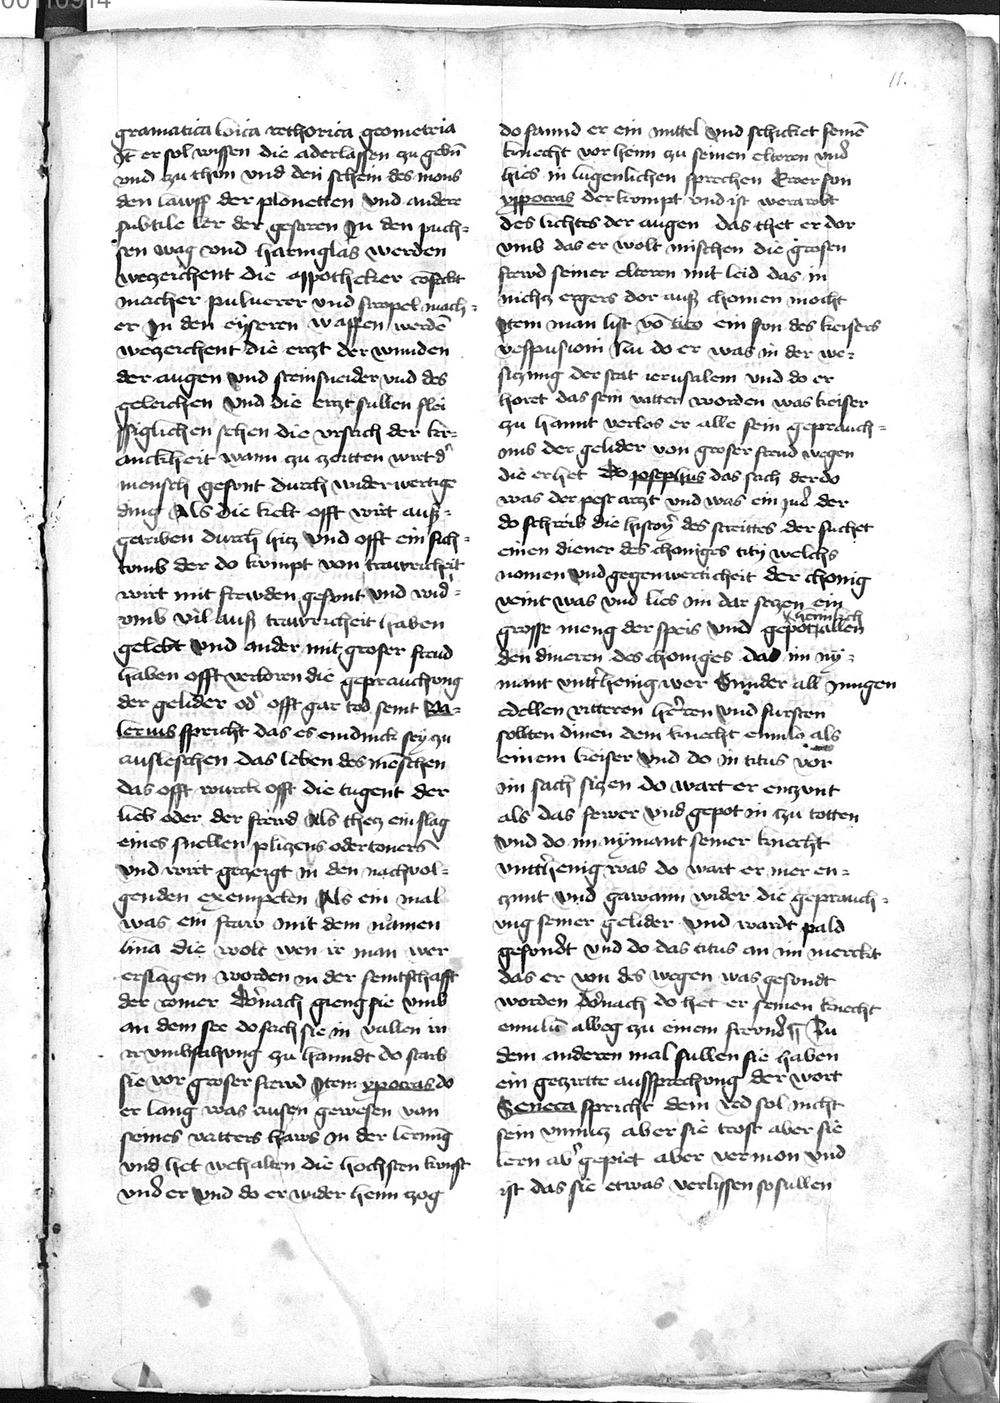 11.
gramatica loica rethorica geometria
Jt̄ er sol wissen die aderlassen zu gebn̄
vnd zu thun vnd den schein des mons
den lawff der planetten vnd andere
subtile ler der gestiren Jn den puch-
sen wag vnd harenglas werden
wezeichent die appotheker cōfeckt
macher puluerer vnd siropel mach-
er Jn den eyseren waffen werdē
wezeichent die erczt der wunden
der augen vnd steinsneider vnd des
geleichen vnd die erczt sullen flei
ssiglichen sehen die vrsach der kr-
anckheit wann zu zeitten wirt dˀ
mensch gesunt durch widerwertige
ding Als die kelt offt wirt auß-
getriben durch hicz vnd offt ein sich-
tumb der do kumpt von trawricheit
wirt mit frewden gesunt vnd wid-
vmb vil auß trawricheit haben
gelebt vnd ander mit groser freud
haben offt verloren die geprauchung
der gelider odˀ offt gar tod seint Va-
lerius spricht das es ein dinck sey zu
ausleschen das leben des mēschen
das offt wurck offt die tugent der
lieb oder der frewd Als thecz ein slag
eines snellen pliczens oder toners
vnd wirt geczeigt in den nachuol-
genden exempelen Als ein mal
was ein fraw mit dem namen
lina die wolt wen ir man wer
erslagen worden in der seintschafft
der romer Dornach gieng sie vmb
an dem see do sach sie in vallen in
ir vmbfahung zu hanndt do starb
sie vor groser frewd Jtem ypocras do
er lang was ausen gewesen von
seines vatters haws in der lernūg
vnd het wehalten die hochsten kunst
vndˀ er vnd do er wider heim zog
do faund er ein mittel vnd schicket seinē
knecht vor heim zu seinen elteren vndˀ
hies in lugenlichen sprechen Ewer sun
ypocras der kompt vnd ist werawbt
des lichtes der augen das thet er dor
vmb das er wolt mischen die grosen
frewd seiner elteren mit leid das in
nichcz ergers dor auß chomen mocht
Jtem man list vō tito ein sun des keisers
vespasioni Nu do er was in der we-
siczung der stat ierusalem vnd do er
horet das sein vatter worden was keiser
zu hannt verlos er alle sein geprauch-
nus der gelider von groser freud wegen
die er het Do josephus das sach der do
was der pest arczt vnd was ein judˀ der
do schreib die history des streittes der suchet
einen diener des choniges titi welchs
nomen vnd gegenwerticheit der chonig
veint was vnd lies im dar seczen ein
grosse meng der speis vnd gepot allen
heimlich
den dineren des choniges das im ny-
mant vnttˀhenig wer Sunder all jungen
edellen ritteren hˀren vnd fursten
sollten dinen dem knecht emulo als
einem keiser vnd do in titus vor
im sach siczen do wart er enczunt
als das fewer vnd gepot in zu totten
vnd do im nymant seiner knecht
vnttˀhenig was do wart er mer en-
czunt vnd gawann wider die geprauch-
ung seiner gelider vnd wardt pald
gesundt vnd do das titus an im merckt
das er von des wegen was gesundt
worden Dornach do thet er seinen knecht
emulū alweg zu einem freund Zu
dem anderen mal sullen sie haben
ein geczirtte aussprechung der wort
Seneca spricht dem red sol nicht
sein vnnucz aber sie trost aber sie
lern abˀ gepiet aber vermon vnd
ist das sie etwas verlissen so sullen